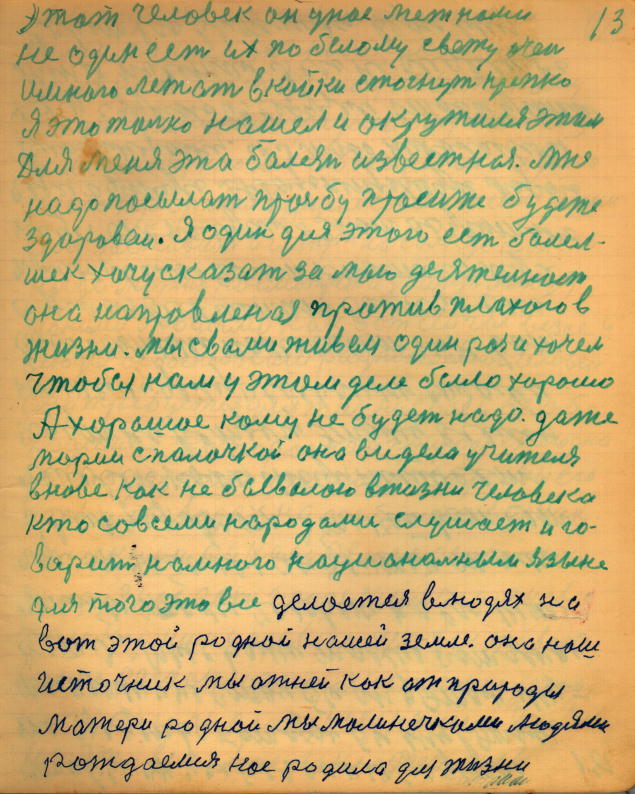 13
Этот человек он упое метнами
не один ест их по белому свету очен
и много летат в койки стогнут препко
Я это толко нашел и окружился этим
Для меня эта балезн известная. Мне
надо посылат прозбу просиже будете
здороваи. Я один для этого ест болел-
шек хочу сказат за мою деятелност
она направленая против плахого в
жизни. мы с вами живем один раз и хочем
чтобы нам у этом деле было хорошо
А хорошое кому не будет надо. даже
марии с палочкой она видела учителя
внове как не бывалою в жизни человека
кто со всеми народами слушает и го-
варит на много националным языке
для того это все делается в людях на
вот этой родной нашей земле. она наш
источник мы от ней как от природы
матери родной мы малинечками людями
рождаемся нас родила для жизни